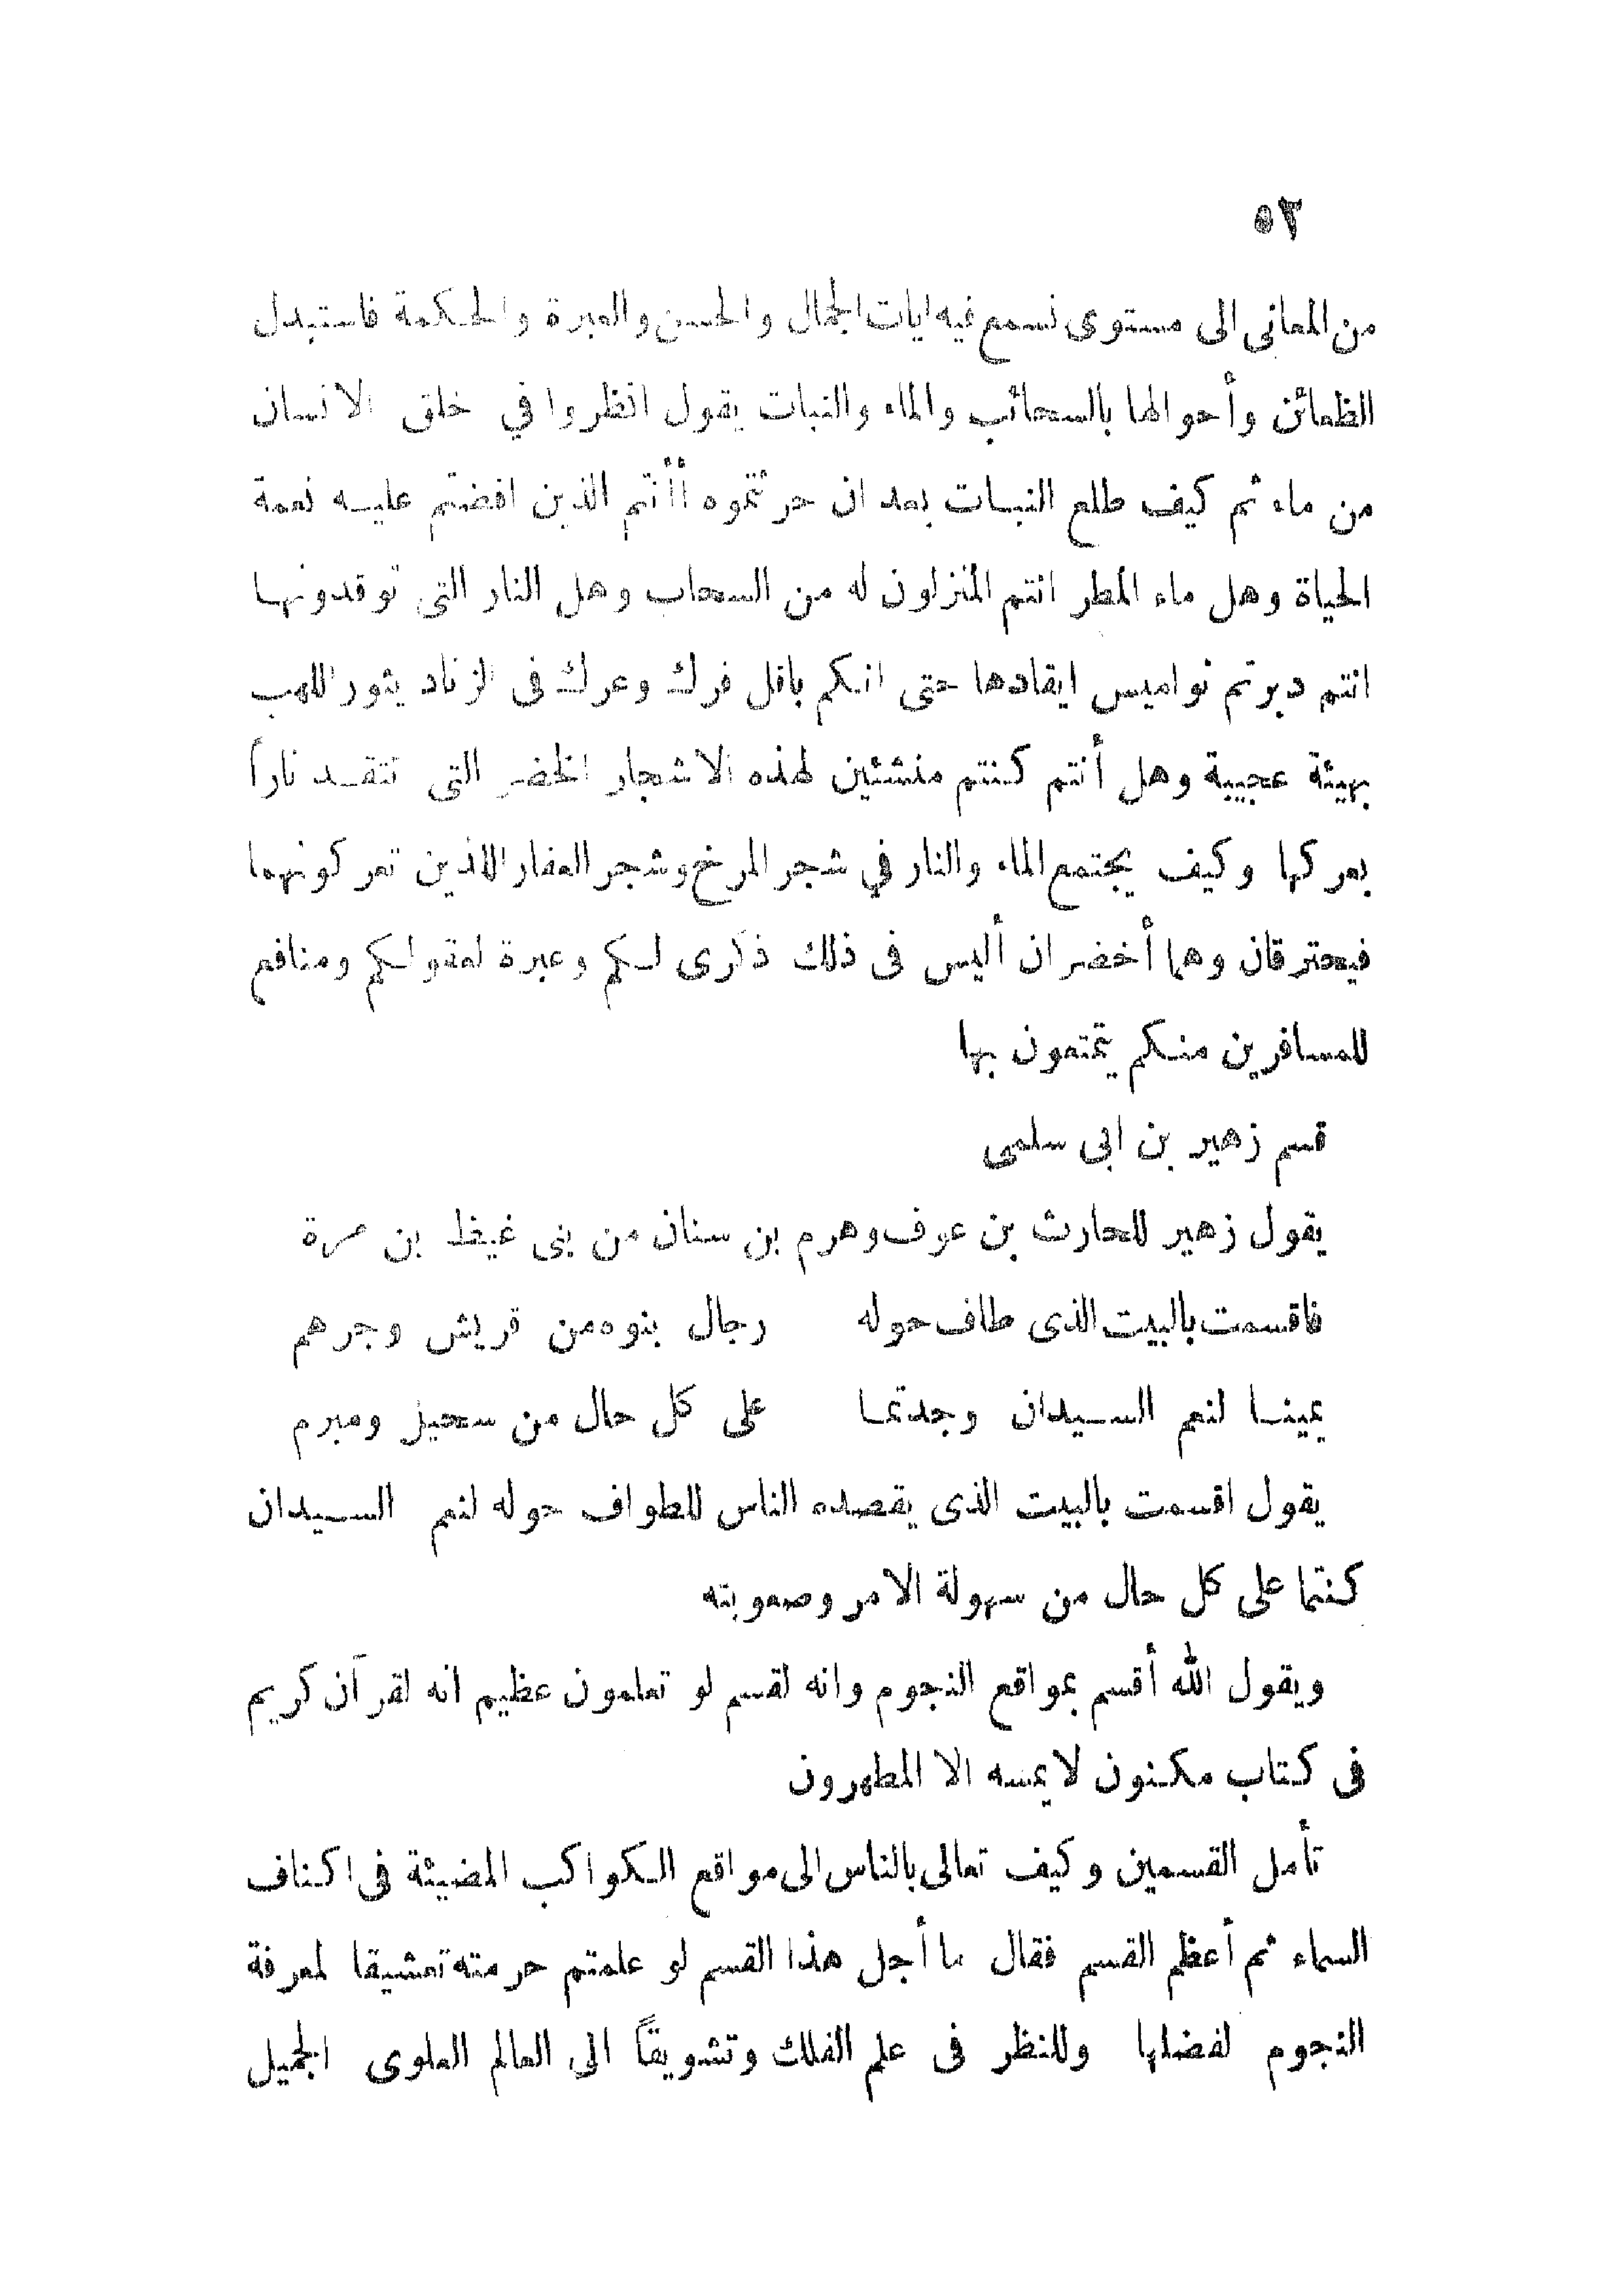 ٥٢
من المعانى الى مستوى نسمع فيه ايات الجمال والحسن والعبرة والحكمة فاستبدل
الظعائن وأحوالها بالسحائب والماء والنبات يقول انظروا في خلق الانسان
من ماء ثم كيف طلع النبات بعد ان حرثتموه أأنتم الذين افضتم عليه نعمة
الحياة وهل ماء المطر انتم المنزلون له من السحاب وهل النار التى توقدونها
انتم دبرتم نواميس ايقادها حتى انكم باقل فرك وعرك فى الزناد يثور اللهب
بهيئة عجيبة وهل أنتم كنتم منشئين لهذه الاشجار الخضر التى تتقد ناراً
بعركها وكيف يجتمع الماء والنار في شجر المرخ وشجر العفار اللذين تعركونهما
فيحترقان وهما أخضران أليس فى ذلك ذكرى لكم وعبرة لعقولكم ومنافع
للمسافرين منكم يتمتعون بها
قسم زهير بن ابى سلمى
يقول زهير للحارث بن عوف وهرم بن سنان من بنى غيظ بن مرة
فاقسمت بالبيت الذى طاف حوله رجال بنوه من قريش وجرهم
يمينا لنعم السيدان وجدتما على كل حال من سحيل ومبرم
يقول اقسمت بالبيت الذى يقصده الناس للطواف حوله لنعم السيدان
كنتما على كل حال من سهولة الامر وصعوبته
ويقول الله أقسم بمواقع النجوم وانه لقسم لو تعلمون عظيم انه لقرآن كريم
فى كتاب مكنون لا يمسه الا المطهرون
تأمل القسمين وكيف تعالى بالناس الى مواقع الكواكب المضيئة فى اكناف
السماء ثم أعظم القسم فقال ما أجل هذا القسم لو علمتم حرمته تعشيقا لمعرفة
النجوم لفضلها وللنظر فى علم الفلك وتشويقاً الى العالم العلوى الجميل